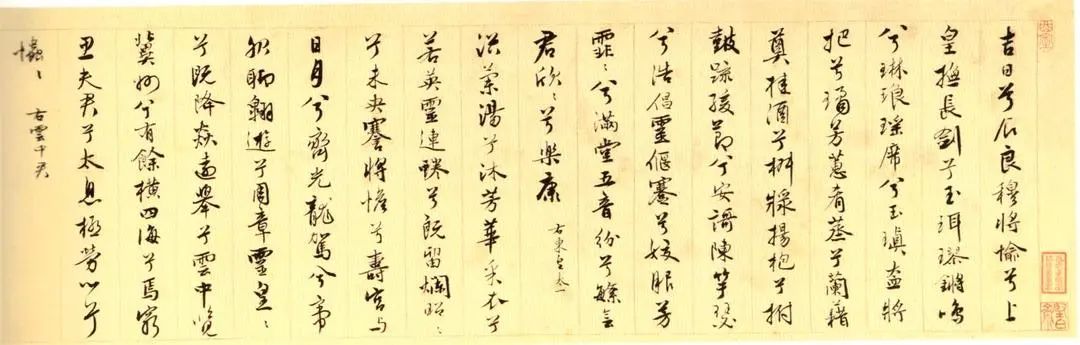 吉日兮辰良穆將愉兮上
皇撫長劍兮玉珥璆鏘鳴
兮琳琅瑤席兮玉瑱盍將
把兮瓊芳蕙肴蒸兮蘭藉
奠桂酒兮椒漿揚枹兮拊
鼓疏緩節兮安謌陳竽瑟
兮浩倡靈偃蹇兮姣服芳
霏〻兮滿堂五音紛兮繁會
君欣〻兮樂康 右東皇太一
浴蘭湯兮沐芳華采衣兮
若英靈連蜷兮既留爛昭〻
兮未央蹇將憺兮壽宮與
日月兮齊光龍駕兮帝
服聊翱遊兮周章靈皇〻
兮既降猋遠舉兮雲中覽
冀州兮有餘橫四海兮焉窮
思夫君兮太息極勞心兮
右雲中君